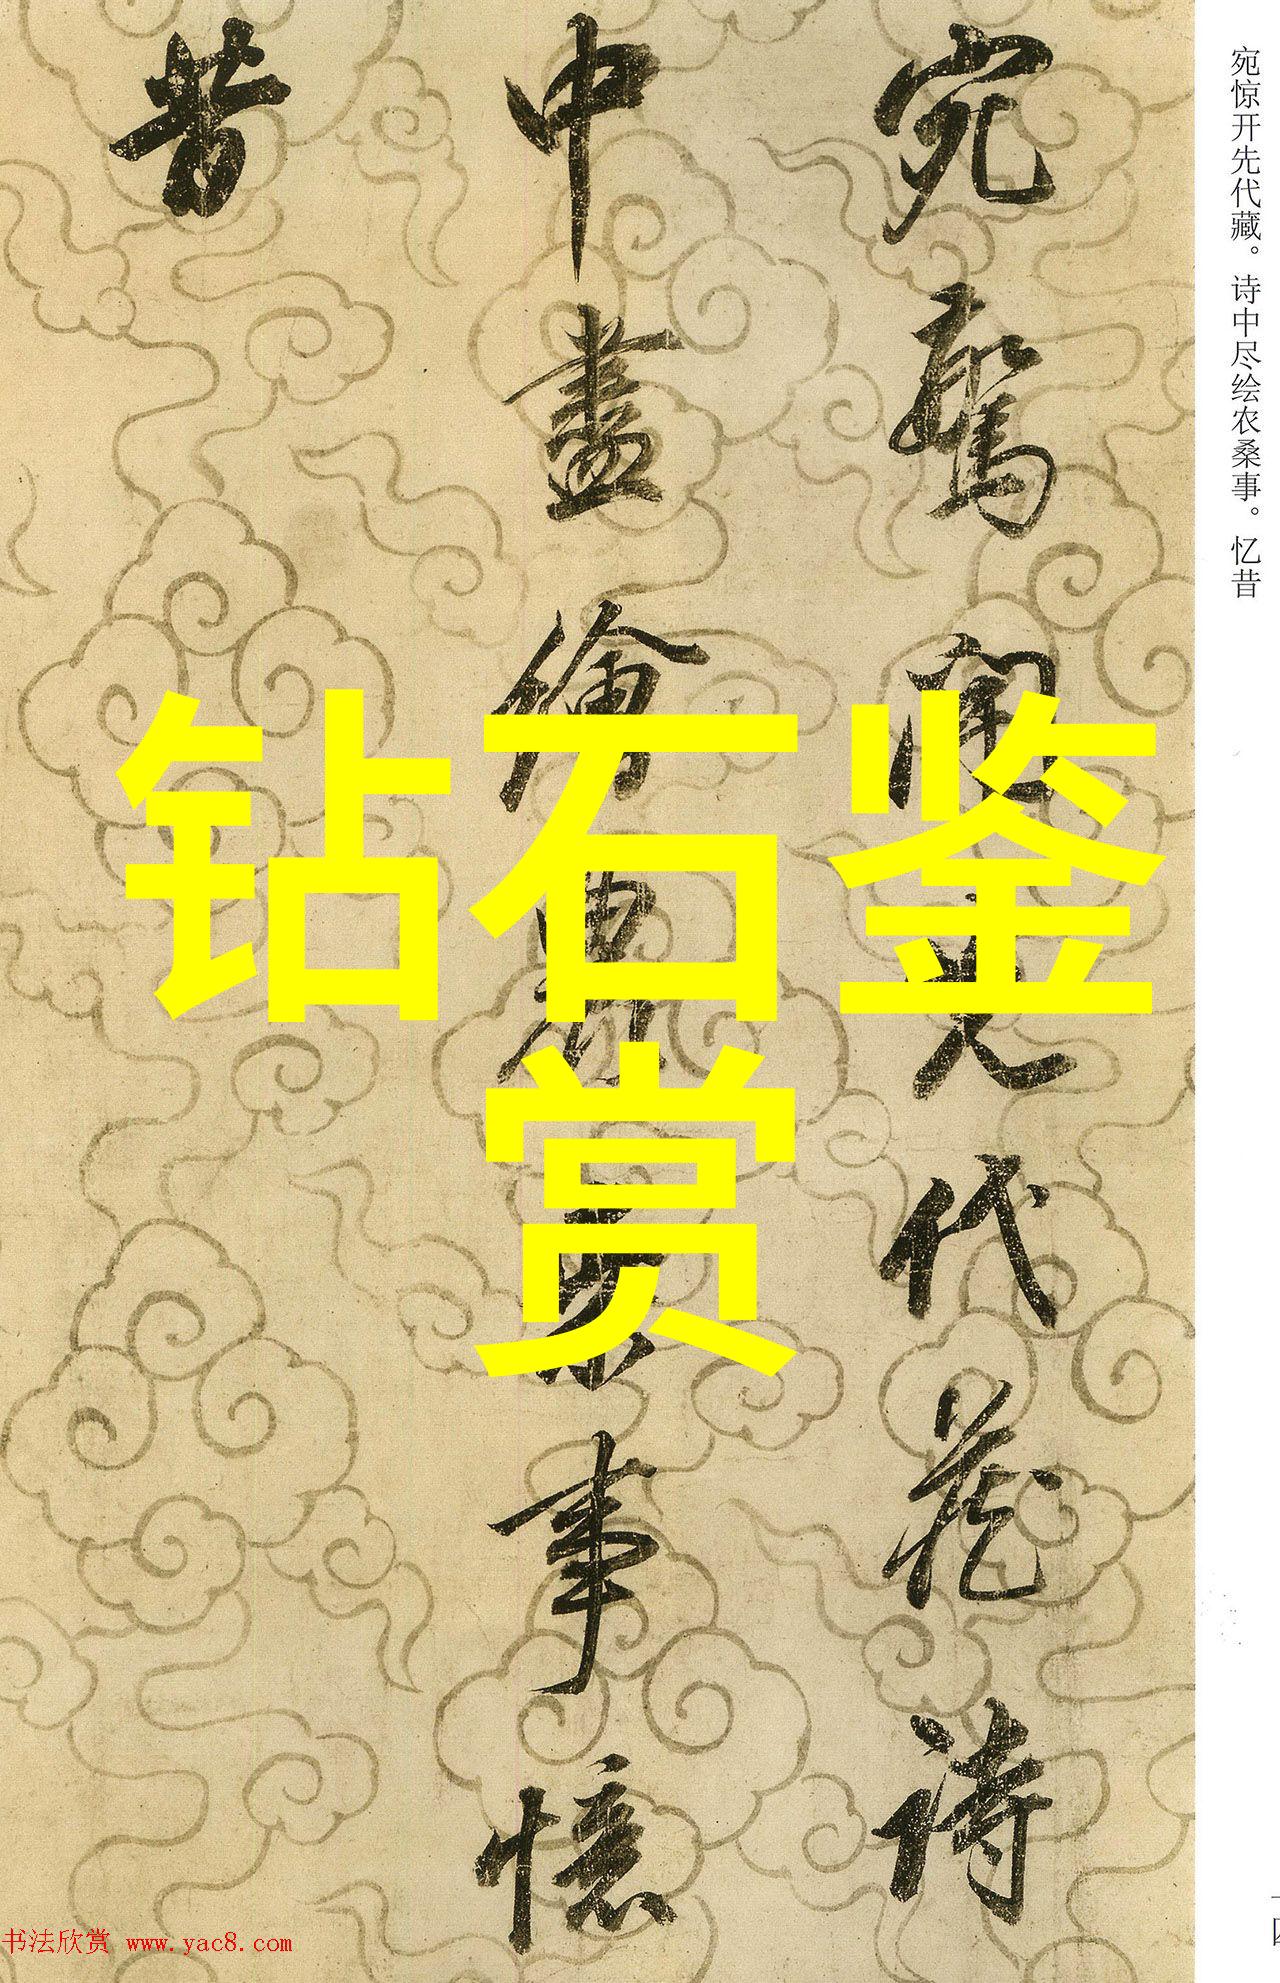 宛惊开先代藏。诗中尽绘农桑事。忆昔
宛驚開先代藏詩
中盡繪農桑事憶
昔
钻石鉴
赏
书法欣赏 www.yac8.com